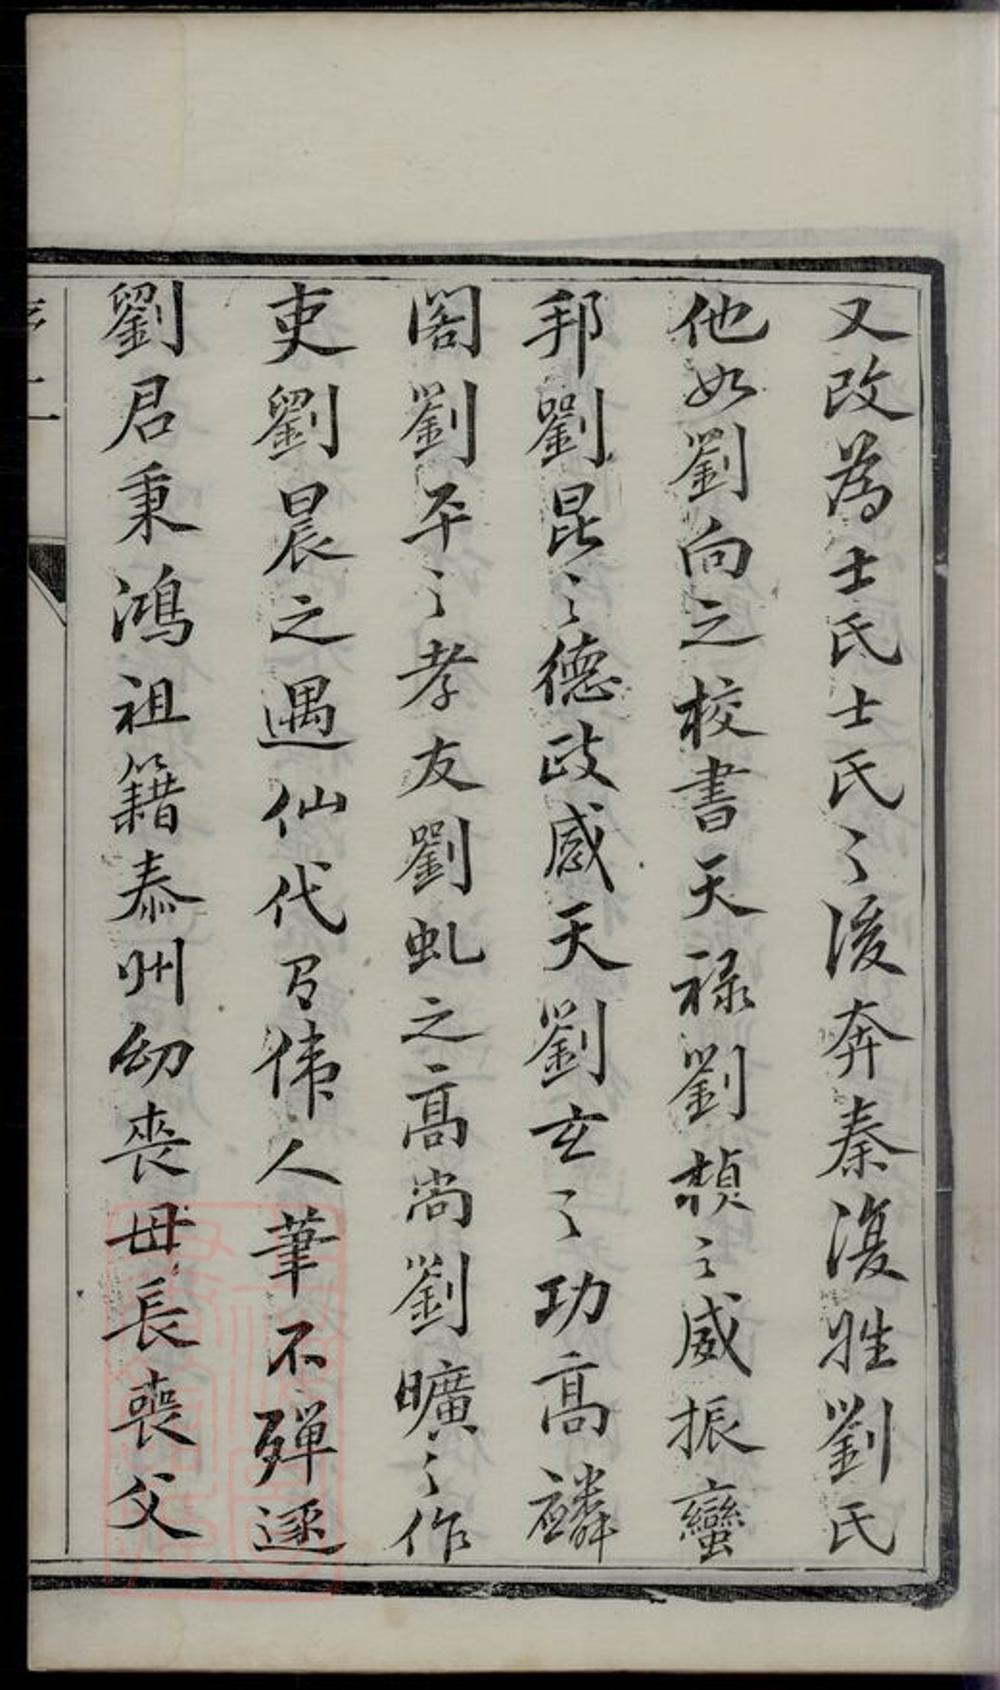 又改為士氏士氏〻後奔秦復姓劉氏
他如劉向之校書天祿劉楨〻威振蠻
邦劉昆〻德政感天劉玄〻功高麟
閣劉平〻孝友劉虬之高尚劉曠〻作
吏劉晨之遇仙代有偉人筆不殫述
劉君秉鴻祖籍泰州幼喪母長喪父
序